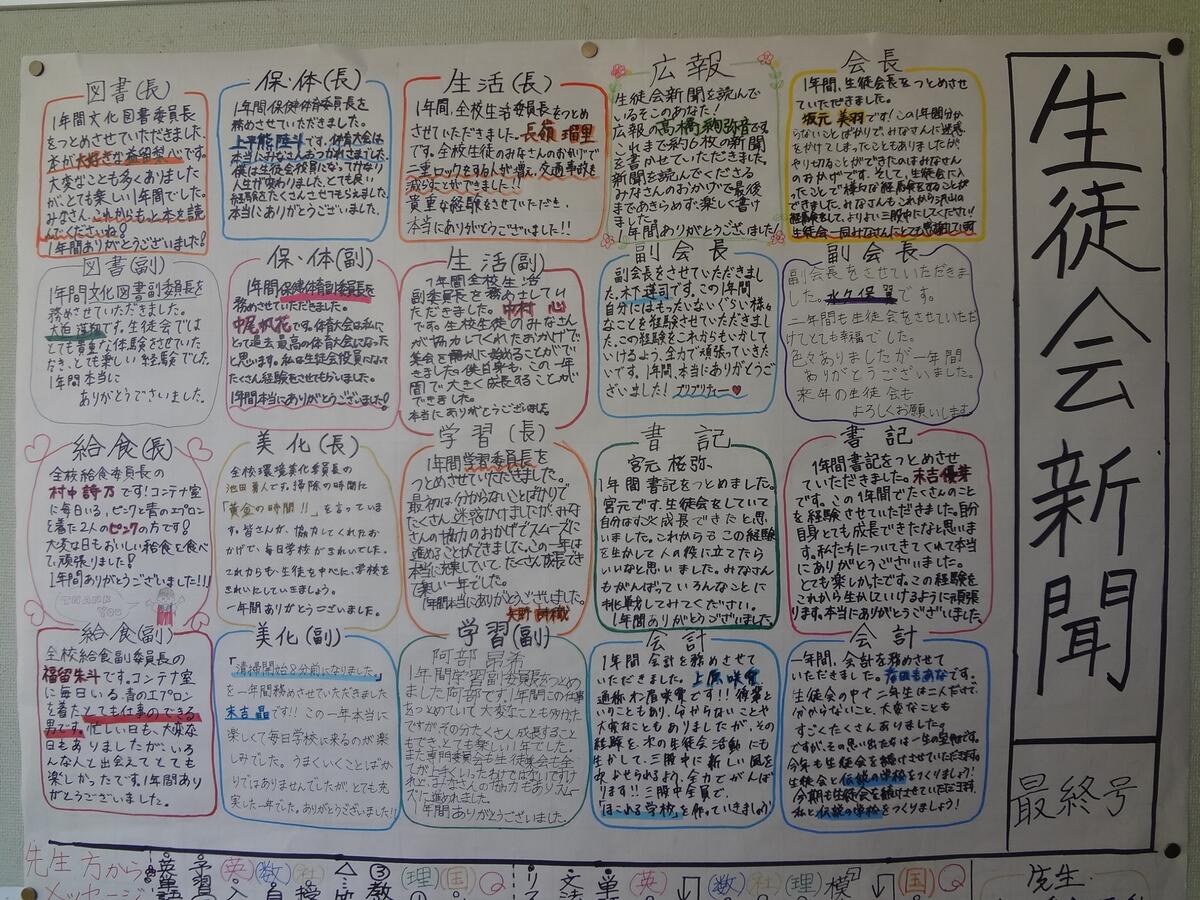 生徒会新聞
最終号
会長
1年間、生徒会長をつとめさせ
ていただきました。
坂元 美羽です!この1年間分か
らないことばかりで、みなさんに迷惑
をかけてしまったこともありましたが、
やり切ることができたのはみなさん
のおかげです。そして、生徒会に入
ったことで様々な経験をすることが
できました。みなさんもこれから沢山の
経験をして、よりよい三股中にしてください!
生徒会一同みなさんにとても感謝しています
広報
生徒会新聞を読んで
いるそこのあなた!
広報の高橋絢弥音です。
これまで約6枚の新聞
を書かせていただきました。
新聞を読んでくださる
みなさんのおかげで最後
まであきらめず、楽しく書け
ました。
1年間ありがとうございました!
生活(長)
1年間、全校生活委員長をつとめ
させていただきました。長嶺 瑠里
です。全校生徒のみなさんのおかげで
二重ロックをする人が増え、交通事故を
減らすことができました!!
貴重な経験をさせていただき、
本当にありがとうございました!!
保・体(長)
1年間保健体育委員長を
務めさせていただきました。
です。体育大会は
本当にみなさんあつかれさまでした。
僕は生徒会役員になってかなり
人生が変わりました。とても良い
経験をたくさんさせてもらえました。
本当にありがとうございました。
図書(長)
1年間文化図書委員長
をつとめさせていただきました、
本が大好きな益留梨心です。
大変なことも多くありました
が、とても楽しい1年間でした。
みなさん、これからもと本を読
んでくださいね!
1年間ありがとうございました!
副会長
副会長をさせていただきま
した。永久保 翼です。
二年間も生徒会をさせていただ
けてとても幸福でした。
色々ありましたが一年間
ありがとうございました。
来年の生徒会も
よろしくお願いします
副会長
副会長をさせていただきまし
た。木下蓮司です。この1年間
自分にはもったいないぐらい様々
なことを経験させていただきまし
た。この経験をこれからもいかして
いけるよう、全力で頑張っていきた
いです。1年間、本当にありがとうご
ざいました!プリプリチュー♥
生活(副)
1年間全校生活
副委員長を務めさしてい
ただきました。中村 心
です。全校生徒のみなさん
が協力してくれたおかげで、
集会を静かに始めることがで
きました。僕自身も、この一年
間で大きく成長することが
できました。
本当にありがとうございました。
保・体(副)
1年間保健体育副委員長を
務めさせていただきました。
中尾帆花です。体育大会は私に
とって過去最高の体育大会になった
と思います。私は生徒会役員になって
たくさん経験をさせてもらいました。
1年間本当にありがとうございました!
図書(副)
1年間文化図書副委員長を
務めさせていただきました。
です。生徒会では
とても貴重な体験をさせていた
だき、とても楽しい経験でした。
1年間本当に
ありがとうございました。
書記
1年間書記をつとめさせ
ていただきました。末吉優芽
です。この1年間でたくさんのこと
を経験させていただきました。自分
自身とても成長できたなと思いま
す。私たちについてきてくれて本当
にありがとうございました。
とても楽しかったです。この経験を
これから生かしていけるように頑張
ります。本当にありがとうございました。
書記
宮元 桜弥、
1年間書記をつとめました。
宮元です。生徒会をしていて
自分はすごく成長できたと思
いました。これからもこの経験
を生かして人の役に立てたら
いいなと思いました。みなさん
もがんばっていろんなことに
挑戦してみてください。
1年間ありがとうございました。
学習(長)
1年間学習委員長を
つとめさせていただきました。
最初は分からないことばかりで
たくさん迷惑かけましたが、みな
さんの協力のおかげでスムーズに
進めることができました。この一年は
本当に充実していて、たくさん成長でき
て楽しい一年でした。
1年間本当にありがとうございました。
美化(長)
全校環境美化委員長の
池田 です。掃除の時間に
「黄金の時間!!」を言っていま
す。皆さんが、協力してくれたお
かげで、毎日学校がきれいでした。
これからも、生徒を中心に、学校を
きれいにしていきましょう。
一年間ありがとうございました。
給食(長)
全校給食委員長の
村中詩乃です!コンテナ室
に毎日いる、ピンクと青のエプロン
を着た2人のピンクの方です!
大変な日もおいしい給食を食べ
て頑張りました!
1年間ありがとうございました!!!
THANK
YOU
会計
一年間、会計を務めさせて
いただきました。 です。
生徒会の中で二年生は二人だけで、
分からないこと、大変なことも
すごくたくさんありました。
ですが、その思い出たちは一生の宝物です。
今年も生徒会を続けさせていただきます。
生徒会と伝説の学校をつくりましょう!
今期も生徒会を続けさせていただきます、
私と伝説の学校をつくりましょう!
会計
1年間会計を務めさせて
いただきました。上原咲愛
通称 です!!後輩と
いうこともあり、分からないことや
大変なこともありましたが、その
経験を、次の生徒会活動にも
生かして、三股中に新しい風を
ふかせられるよう、全力でがんば
ります!!三股中全員で、
「ほこれる学校」を作っていきましょう
学習(副)
阿部 昂希
1年間学習副委員長をつとめ
ました阿部です。1年間この仕事
をつとめていて大変なことも多かった
ですがその分たくさん成長すること
もでき、とても楽しい1年でした。
また専門委員会も生徒集会も全
てが上手くいったわけではないですけ
ど、みなさんの協力もありスムー
ズに進めれました。
1年間ありがとうございました。
美化(副)
「清掃開始8分前になりました。」
を一年間務めさせていただきました
末吉晶です!!この一年本当に
楽しくて毎日学校に来るのが楽
しみでした。うまくいくことばか
りではありませんでしたが、とても充
実した一年でした。ありがとうございました!!
給食(副)
全校給食副委員長の
福留朱斗です。コンテナ室
に毎日いる、青のエプロン
を着たとても仕事のできる
男です。忙しい日も、大変な
日もありましたが、いろ
んな人と出会えてとても
楽しかったです。1年間あり
がとうございました。
先生方から
メッセージ
英単語
予習
英
数
社
理
国
リス
文法
単
英
数
社
理
模
国
先生